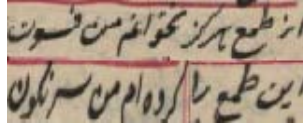 از طمع هرگز نخوانم من فسون
این طمع را کرده‌ام من سرنگون